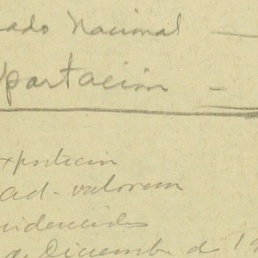 ado Nacional
portación
xportacion
ad-valorem
de Diciembre de 19